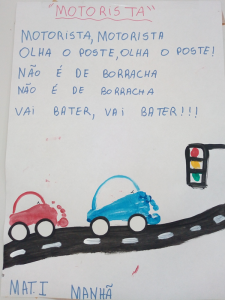 "MOTORISTA"
MOTORISTA, MOTORISTA
OLHA O POSTE, OLHA O POSTE!
NÃO É DE BORRACHA
NÃO É DE BORRACHA
VAI BATER, VAI BATER!!!
MATI MANHÃ